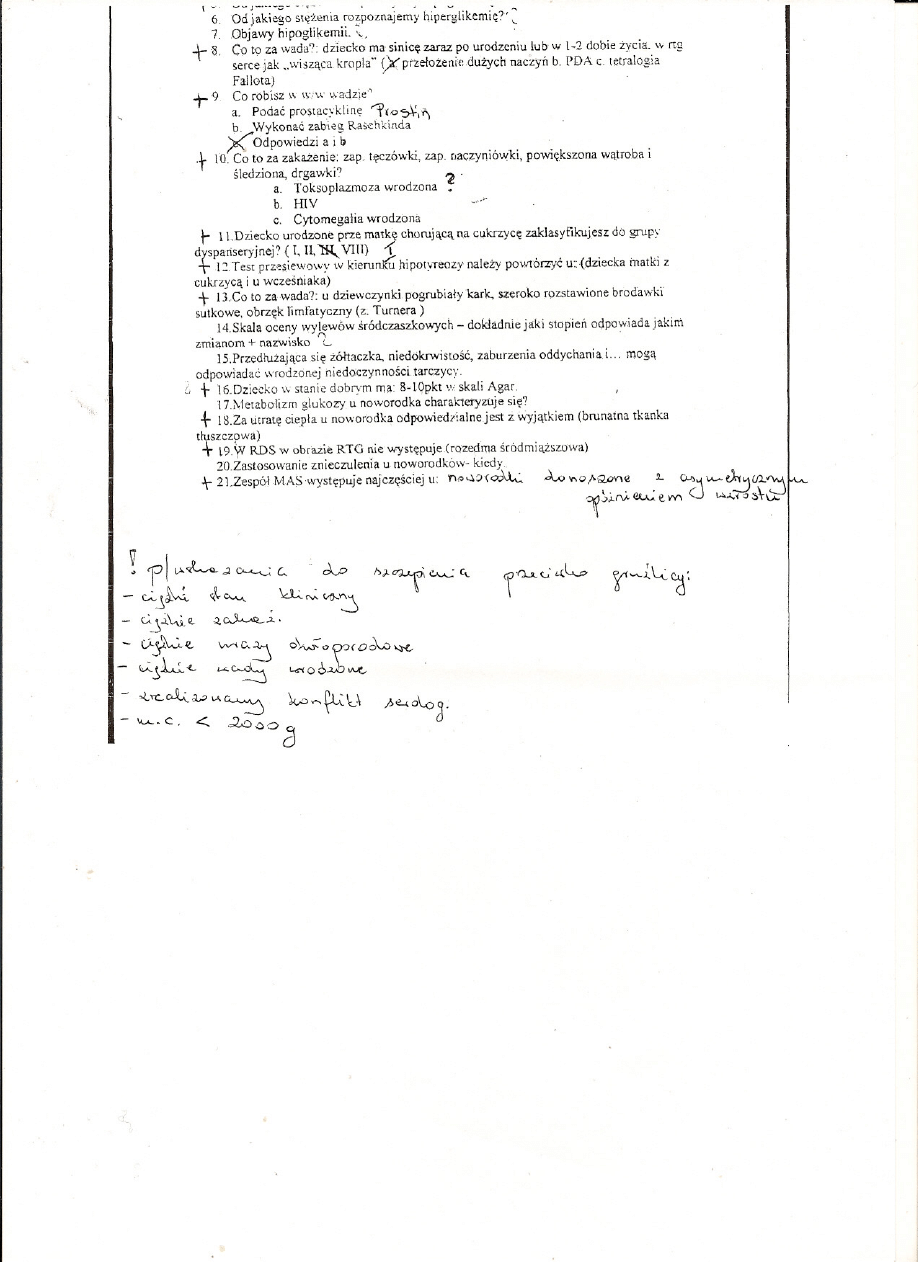 6. Od jakiego stężenia rozpoznajemy hiperglikemię?
7. Objawy hipoglikemii.
+ 8. Co to za wada?: dziecko ma sinicę zaraz po urodzeniu lub w 1-2 dobie życia. w rtg
serce jak „wisząca kropla" ( przełożenie dużych naczyń b. PDA c. tetralogia
Fallota)
+ 9 Co robisz w w/w wadzie?
a. Podać prostacyklinę Prostin
b. Wykonać zabieg Raschkinda
Odpowiedzi a i b
+ 10. Co to za zakażenie: zap. tęczówki, zap. naczyniówki, powiększona wątroba i
śledziona, drgawki?
a. Toksoplazmoza wrodzona ?
b. HIV
c. Cytomegalia wrodzona
+ 11.Dziecko urodzone prze matkę chorującą na cukrzycę zaklasyfikujesz do grupy
dyspanseryjnej? ( I, II, III, VIII)
+ 12.Test przesiewowy w kierunku hipotyreozy należy powtórzyć u: (dziecka matki z
cukrzycą i u wcześniaka)
+ 13.Co to za wada?: u dziewczynki pogrubiały kark, szeroko rozstawione brodawki
sutkowe, obrzęk limfatyczny (z. Turnera )
14.Skala oceny wylewów śródczaszkowych – dokładnie jaki stopień odpowiada jakim
zmianom + nazwisko
15.Przedłużająca się żółtaczka, niedokrwistość, zaburzenia oddychania i... mogą
odpowiadać wrodzonej niedoczynności tarczycy.
+ 16.Dziecko w stanie dobrym ma: 8-10pkt w skali Agar.
17.Metabolizm glukozy u noworodka charakteryzuje się?
+ 18.Za utratę ciepła u noworodka odpowiedzialne jest z wyjątkiem (brunatna tkanka
tłuszczowa)
+ 19.W RDS w obrazie RTG nie występuje (rozedma śródmiąższowa)
20.Zastosowanie znieczulenia u noworodków- kiedy.
+ 21.Zespół MAS występuje najczęściej u: noworodki donoszone z asymetrycznym
opóźnieniem wzrostu
! p/wskazania do szczepienia przeciwko gruźlicy:
- ciężki stan kliniczny
- ciężkie zakaż.
- ciężkie urazy okołoporodowe
- ciężkie wady wrodzone
- zrealizowany konflikt serolog.
- m.c. < 2000 g